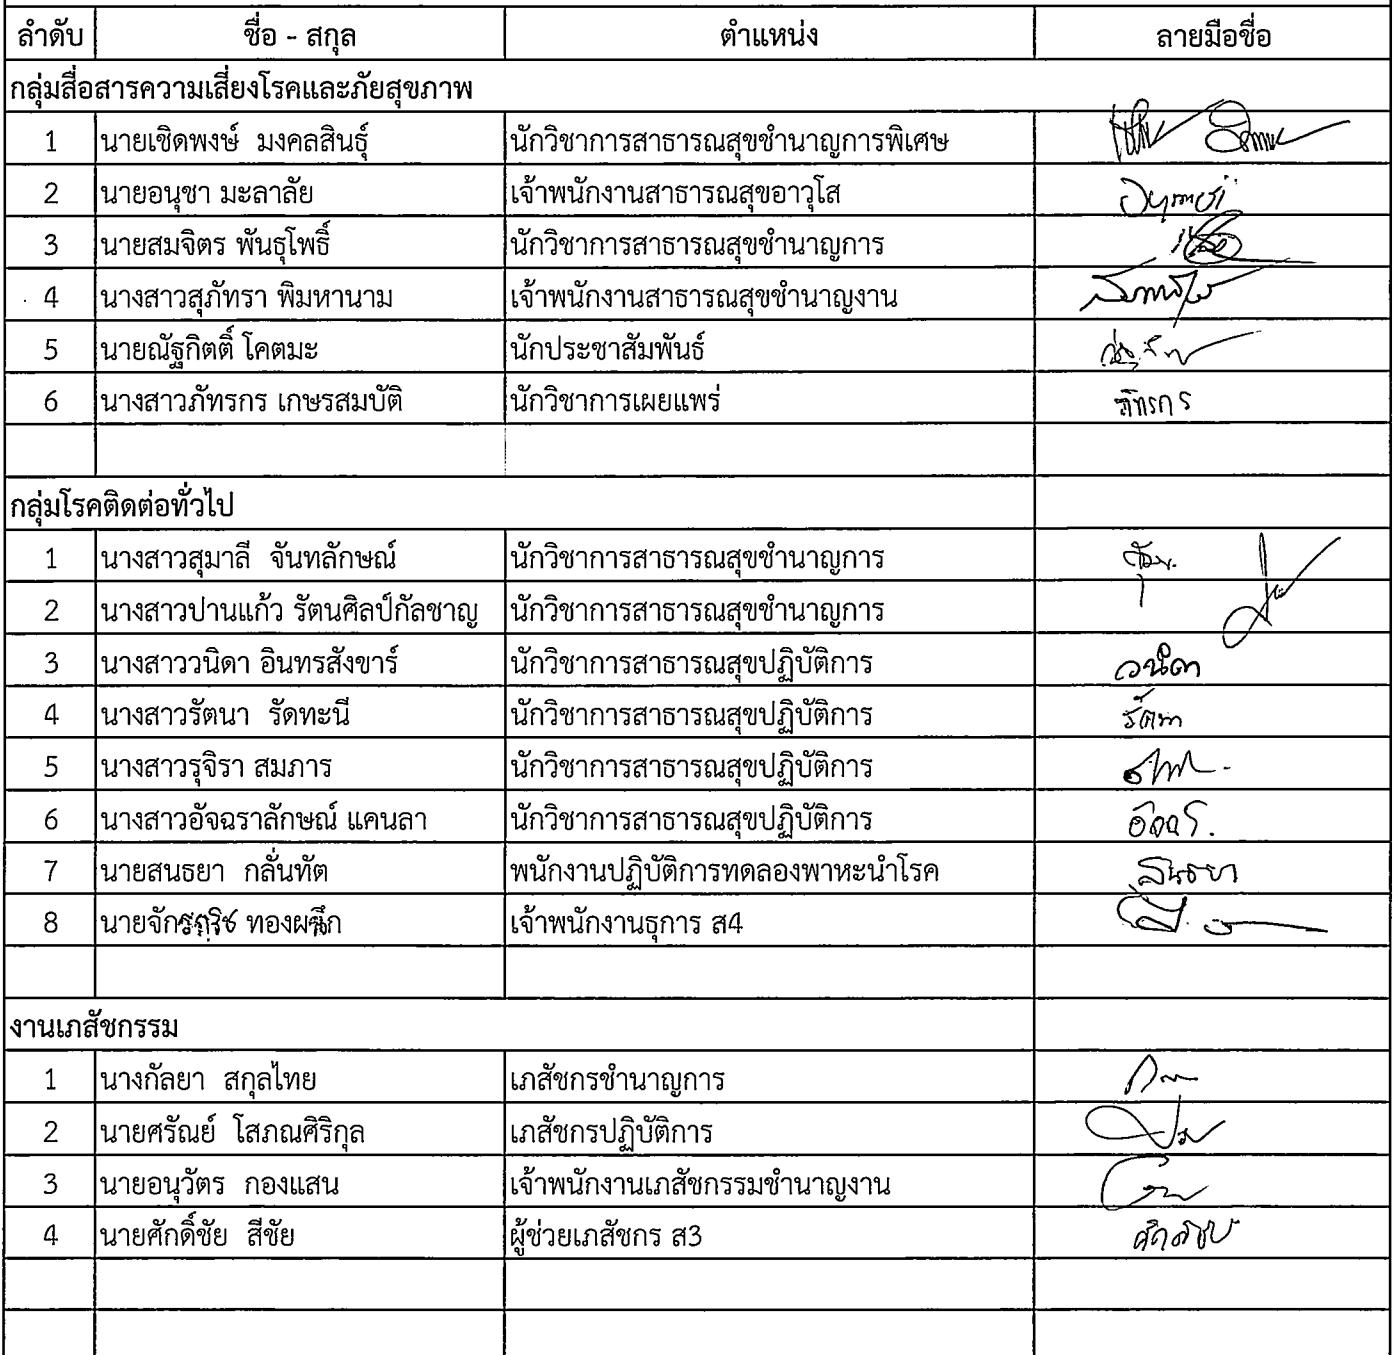 ลำดับ ชื่อ - สกุล ตำแหน่ง ลายมือชื่อ
กลุ่มสื่อสารความเสี่ยงโรคและภัยสุขภาพ
1 นายเชิดพงษ์ มงคลสินธุ์ นักวิชาการสาธารณสุขชำนาญการพิเศษ
2 นายอนุชา มะลาลัย เจ้าพนักงานสาธารณสุขอาวุโส
3 นายสมจิตร พันธุโพธิ์ นักวิชาการสาธารณสุขชำนาญการ
4 นางสาวสุภัทรา พิมหานาม เจ้าพนักงานสาธารณสุขชำนาญงาน
5 นายณัฐกิตติ์ โคตมะ นักประชาสัมพันธ์
6 นางสาวภัทรกร เกษรสมบัติ นักวิชาการเผยแพร่ ภัทรกร
กลุ่มโรคติดต่อทั่วไป
1 นางสาวสุมาลี จันทลักษณ์ นักวิชาการสาธารณสุขชำนาญการ
2 นางสาวปานแก้ว รัตนศิลป์กัลชาญ นักวิชาการสาธารณสุขชำนาญการ
3 นางสาววนิดา อินทรสังขาร์ นักวิชาการสาธารณสุขปฏิบัติการ วนิดา
4 นางสาวรัตนา รัดทะนี นักวิชาการสาธารณสุขปฏิบัติการ รัตนา
5 นางสาวรุจิรา สมภาร นักวิชาการสาธารณสุขปฏิบัติการ
6 นางสาวอัจฉราลักษณ์ แคนลา นักวิชาการสาธารณสุขปฏิบัติการ
7 นายสนธยา กลั่นทัต พนักงานปฏิบัติการทดลองพาหะนำโรค สนธยา
8 ทอง เจ้าพนักงานธุการ ส4
งานเภสัชกรรม
1 นางกัลยา สกุลไทย เภสัชกรชำนาญการ
2 นายศรัณย์ โสภณศิริกุล เภสัชกรปฏิบัติการ
3 นายอนุวัตร กองแสน เจ้าพนักงานเภสัชกรรมชำนาญงาน
4 นายศักดิ์ชัย สีชัย ผู้ช่วยเภสัชกร ส3